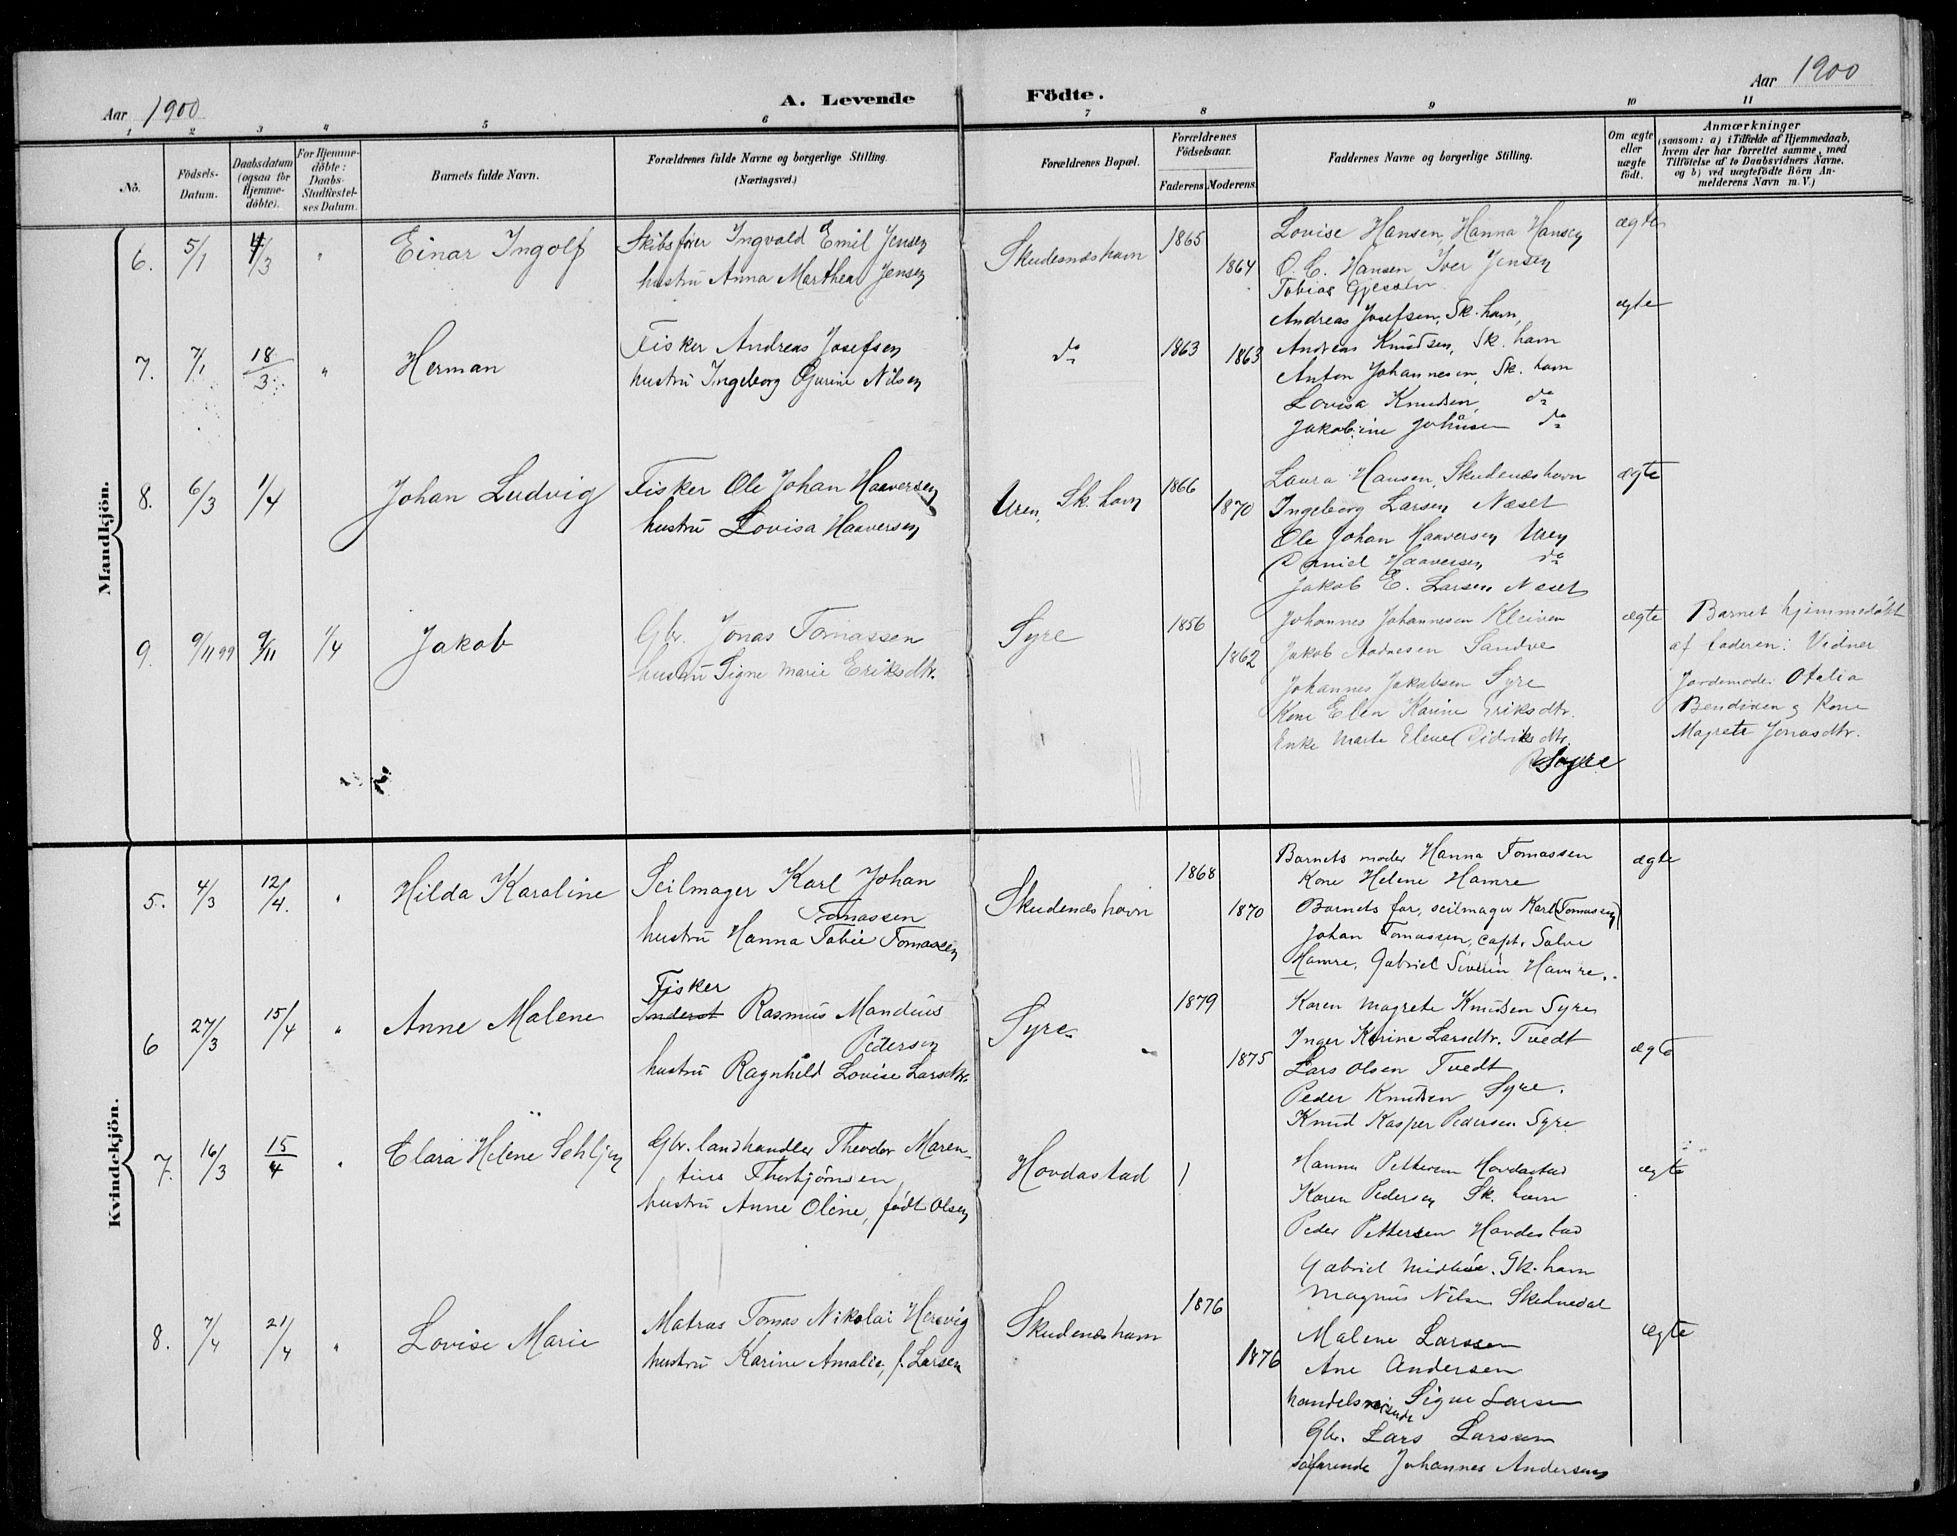 Aar 1900
A. Levende Födte.
Aar 1900
1 2 3 4 5 6 7 8 9 10 11
Nö.
Födsels-Datum.
Daabsdatum (ogsaa for Hjemme-döbte).
For Hjemme-döbte: Daabs-Stadfæstel-ses Datum.
Barnets fulde Navn.
Forældrenes fulde Navne og borgerlige Stilling.
(Næringsvei.)
Forældrenes Bopæl.
Forældrenes Födselsaar.
Faderens. Moderens.
Faddernes Navne og borgerlige Stilling.
Om ægte eller uægte födt.
Anmærkninger
(saasom: a) i Tilfælde af Hjemmedaab,
hvem der har forrettet samme, med
Tilföielse af to Daabsvidners Navne,
og b) ved uægtefödte Börn An-
melderens Navn m. V.)
Mandkjön.
6. 5/1 4/3 " Einar Ingolf
Skibsfører Ingvald Emil Jensen
hustru Anna Marthea Jensen
Skudesnæshavn 1865 1864
Lovise Hansen, Hanna Hansen
O. C. Hansen Iver Jensen
Tobias Gjessen
ægte
7. 7/1 18/3 " Herman
Fisker Andreas Josefsen
hustru Ingeborg Gurine Nilsen
do 1863 1863
Andreas Josefsen, Sk. havn,
Andreas Knudsen, Sk. havn
Anton Johannesen, Sk. havn
Lovisa Knudsen, do
Jakobine do
ægte
8. 6/3 1/4 Johan Ludvig
Fisker Ole Johan Haaversen
hustru Lovisa Haaversen
Uren, Sk. havn 1866 1870
Laura Hansen, Skudenæshavn
Ingeborg Larsen Næset
Ole Johan Haaversen Uren
Daniel Haaversen do
Jakob E. Larsen Næset
ægte
9. 9/11 99 9/11 1/4 Jakob
Gbr. Jonas Tomassen
hustru Signe Marie Eriksdtr.
Syre 1856 1862
Johannes Johannesen Kleiven
Jakob Sandve
Johannes Jakobsen Syre
Kone Elen Karine Eriksdtr.
Enke Marte Elene Didriksdtr.
Syre
ægte
Barnet hjemmedøbt
af faderen: Vidner
Jordemoder Otelia
Bendixen og Kone
Magrete Jonasdtr.
Kvindekjön.
5. 4/3 12/4. " Hilda Karoline
Seilmager Karl Johan
Tomassen
hustru Hanna Tobie Tomassen
Skudenæshavn 1868 1870
Barnets moder Hanna Tomassen
Kone Helene Hamre
Barnets far, seilmager Karl Tomassen
Johan Tomassen, capt. Salve
Hamre, Gabriel Siverin Hamre.
ægte
6 27/3 15/4 " Anne Malene
Fisker
Inderst Rasmus Mandius
Pedersen
hustru Ragnhild Lovise Larsdtr.
Syre 1879 1875
Karen Magrete Knudsen Syre
Inger Karine Larsdtr. Tvedt
Lars Olsen Tvedt
Peder Knudsen Syre.
Knud Kasper Pedersen Syre
ægte
7. 16/3 15/4 " Clara Helene
Gbr. landhandler Theodor Maren-
tius Thorbjørnsen
hustru Anne Oline, født Olsen
Hovdastad
Hanna Pettersen Hovdastad
Karen Pedersen Sk. havn
Peder Pettersen Hovdestad
Gabriel Sk. havn
Magnus Nilsen
ægte
8. 7/4 21/4 " Lovise Marie
Matros Tomas Nikolai Hersvig
hustru Karine Amalie, f. Larsen
Skudenæshavn 1876 1876
Malene Larssen
Ane Andersen
handelsreisende Sigve Larsen
Gbr. Lars Larssen
søfarende Johannes Andersen
ægte